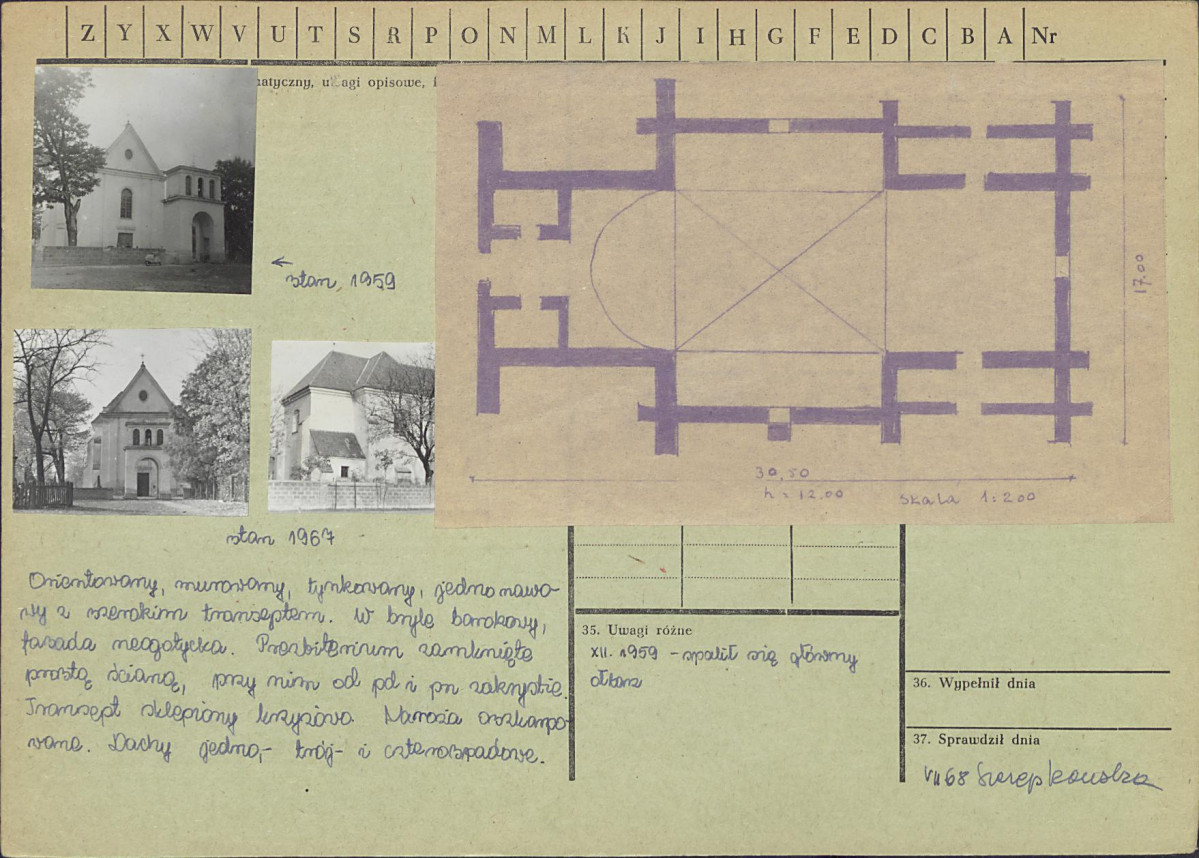 Z Y X W V U T S R P O N M L K J I H G F E D C B A Nr
uwagi opisowe,
← stan, 1959
17.00
30,50
h = 12.00 skala 1:200
stan 1967
Orientowany, murowany, tynkowany, jednonawo-
wy z szerokim transeptem. W bryle barokowy,
fasada neogotycka. Prezbiterium zamknięte
prostą ścianą, przy nim od pd i pn zakrystie.
Transept sklepiony krzyżowo. Naroża oszkarpo
wane. Dachy jedno,- trój- i czterospadowe.
35. Uwagi różne
XII. 1959 - spalił się główny
ołtarz
36. Wypełnił dnia
37. Sprawdził dnia
VII 68